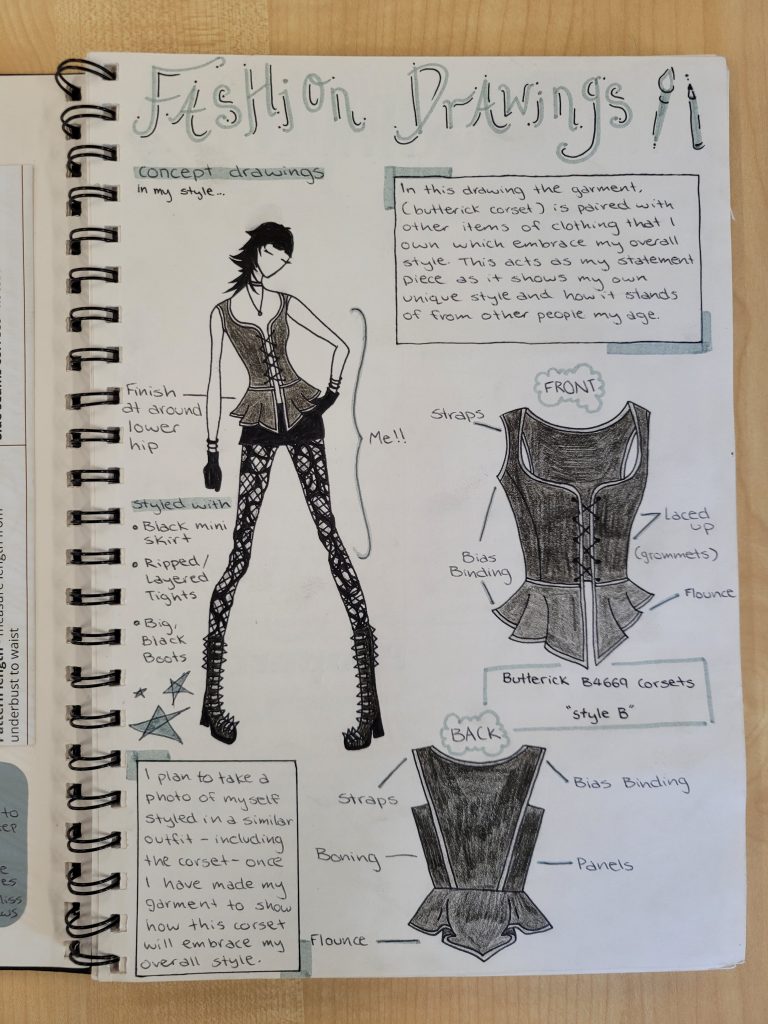 Fashion Drawings
concept drawings
in my style...
In this drawing the garment,
(butterick corset) is paired with
other items of clothing that I
own which embrace my overall
style. This acts as my statement
piece as it shows my own
unique style and how it stands
of from other people my age.
Finish
at around
lower
hip
Me!!
styled with
• Black mini
skirt
• Ripped/
Layered
Tights
• Big,
Black
Boots
FRONT
Straps
Laced
up
(grommets)
Bias
Binding
Flounce
Butterick B4669 Corsets
"Style B"
BACK
Straps
Bias Binding
Boning
Panels
Flounce
I plan to take a
photo of myself
styled in a similar
outfit - including
the corset - once
I have made my
garment to show
how this corset
will embrace my
overall style.
underbust to waist
to